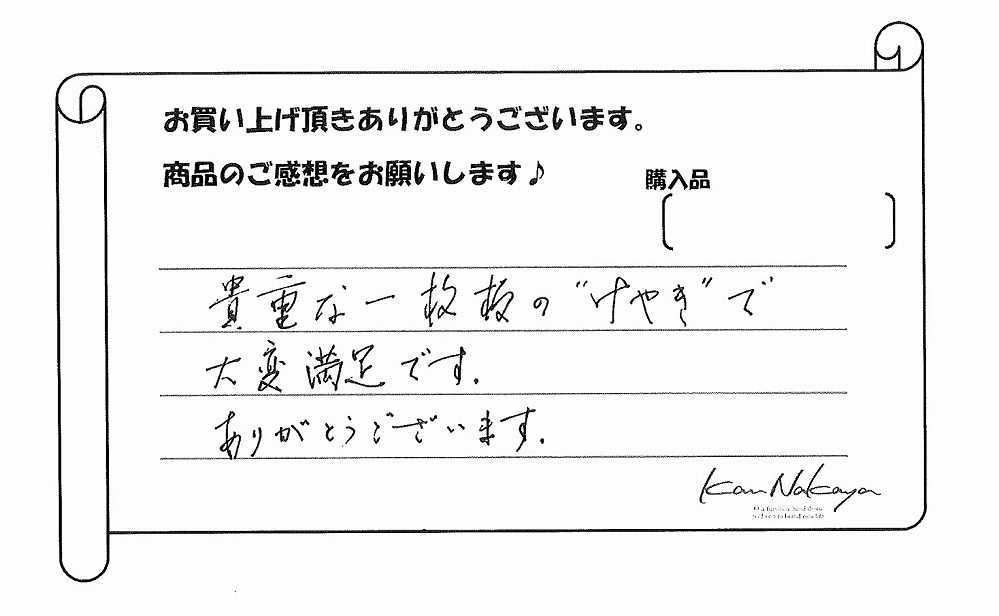 お買い上げ頂きありがとうございます。
商品のご感想をお願いします♪
購入品
貴重な一枚板の“けやき”で
大変満足です.
ありがとうございます.
Kan Nakaya